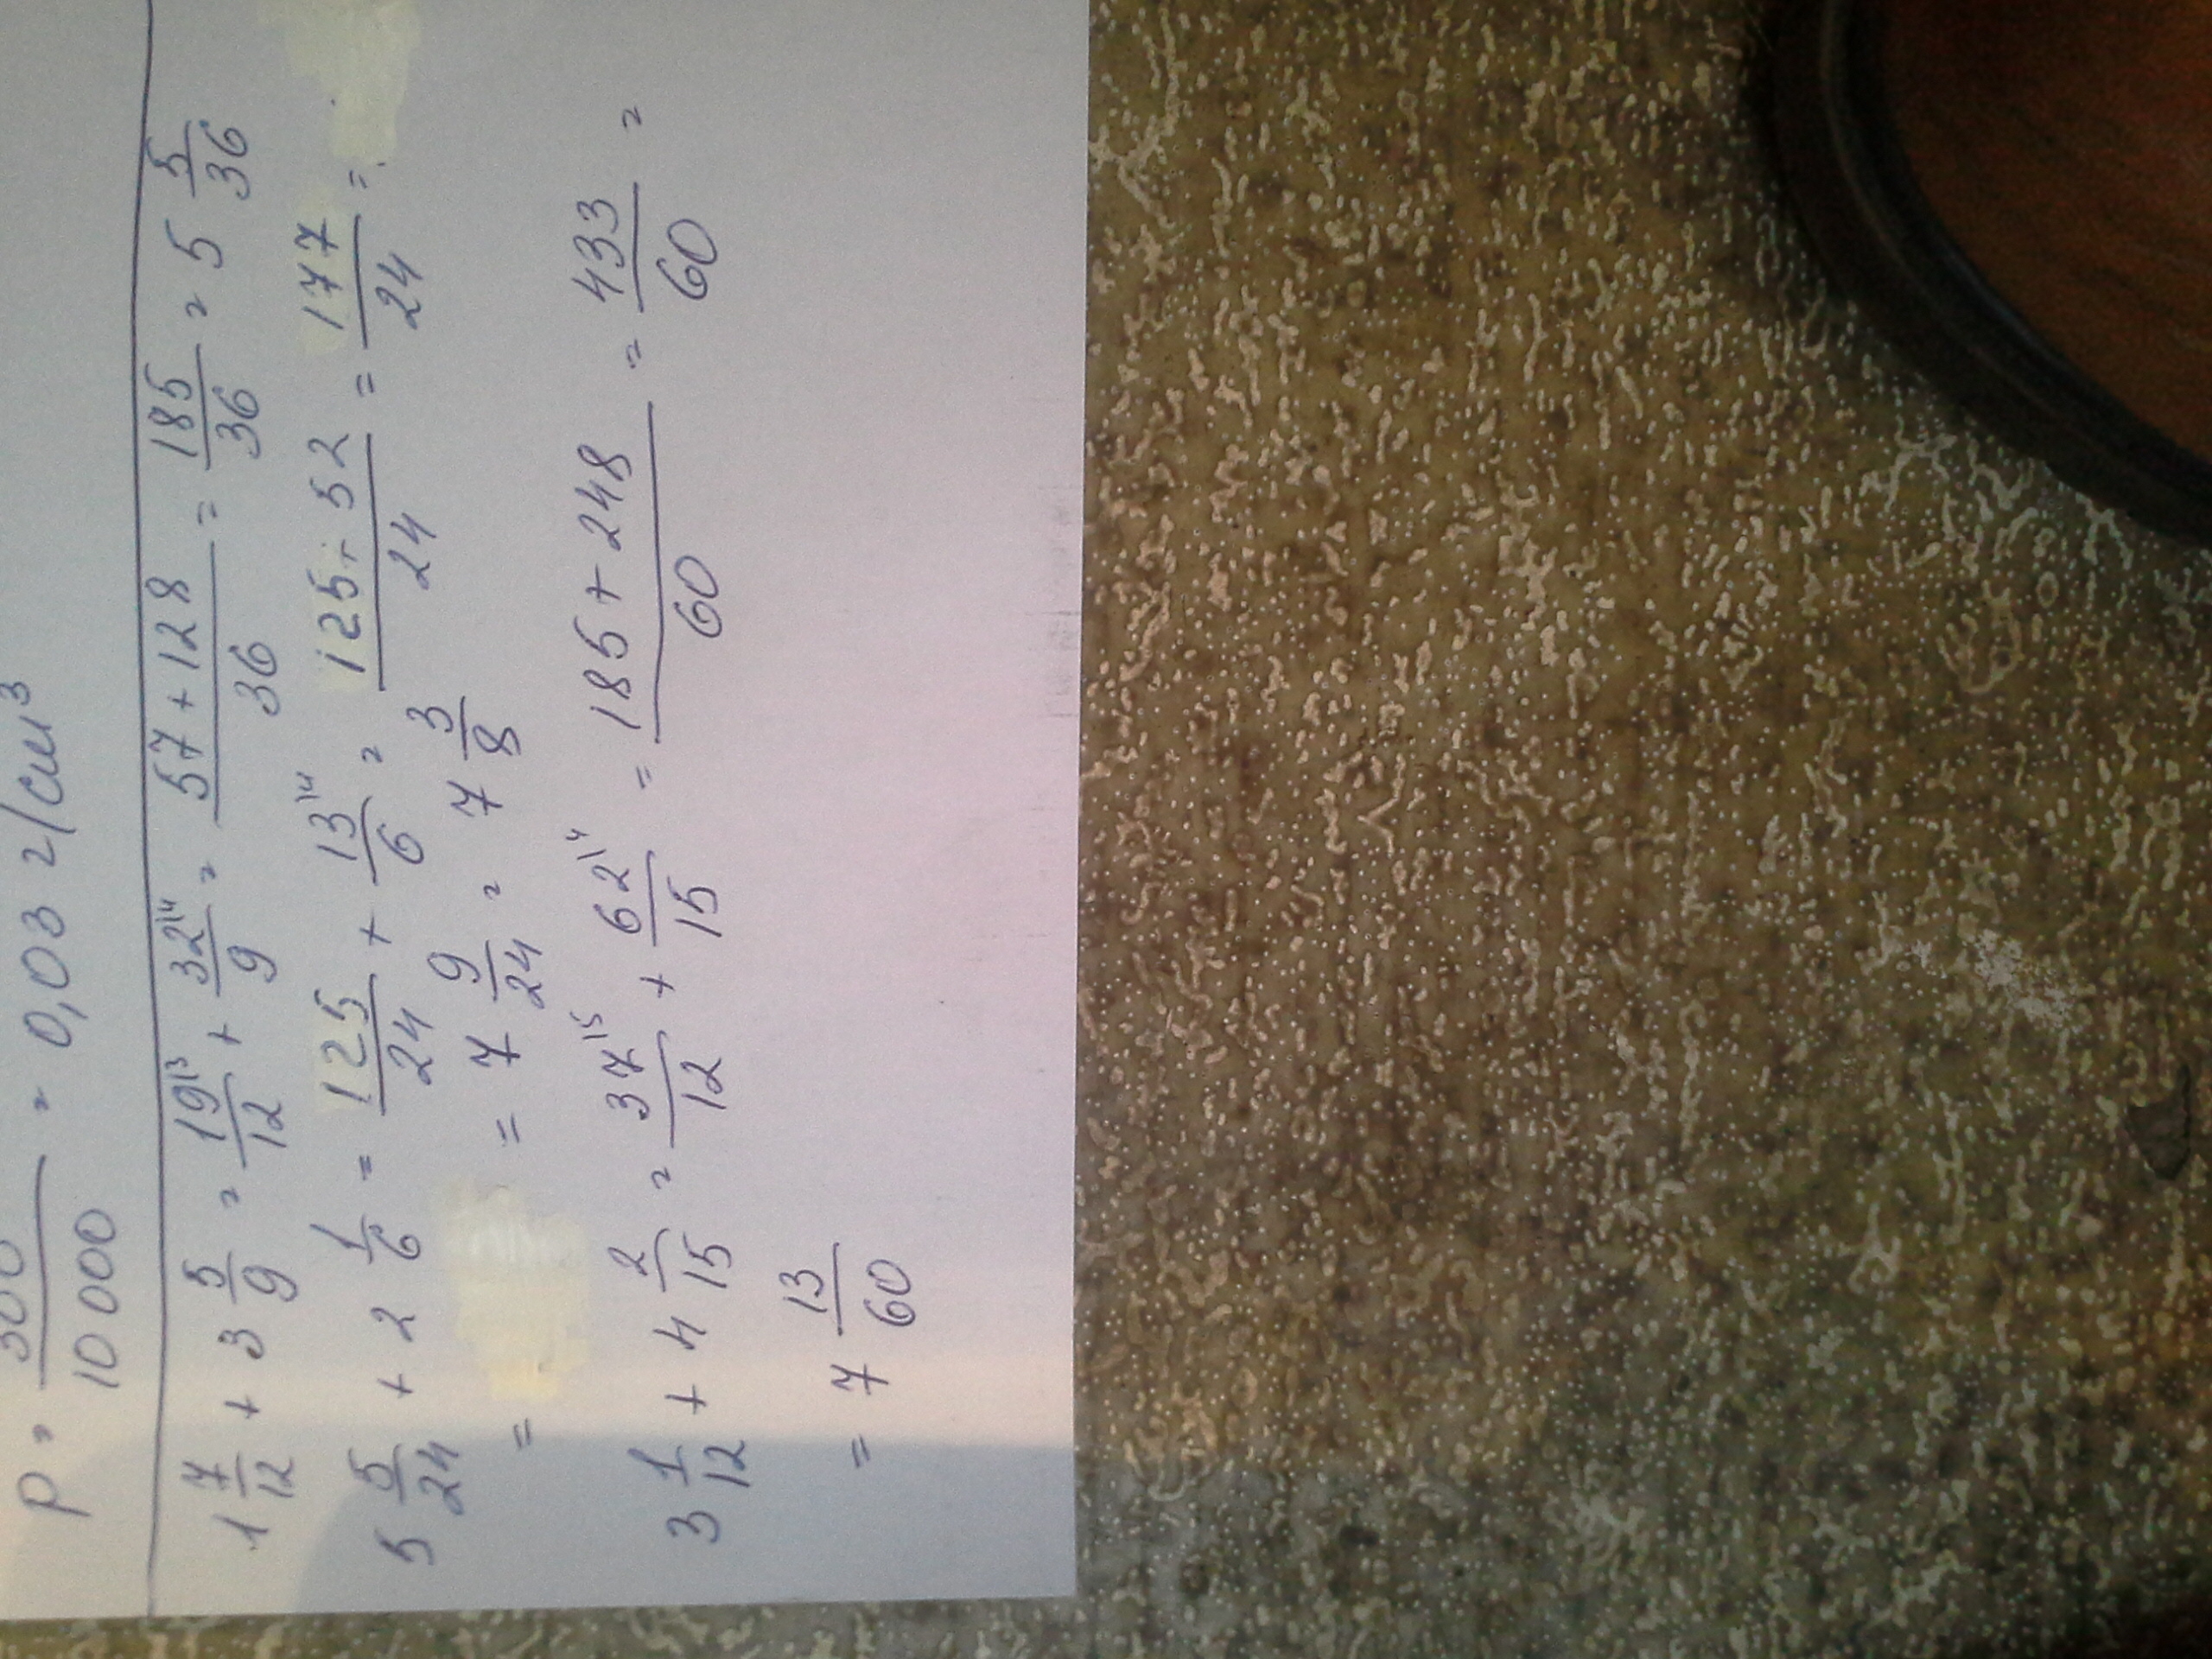 P = 300/10 000 = 0,03 г/см³
1 7/12 + 3 5/9 = 19/12 + 32/9 = (57 + 128)/36 = 185/36 = 5 5/36
5 5/24 + 2 1/6 = 125/24 + 13/6 = (125 + 52)/24 = 177/24 =
= = 7 9/24 = 7 3/8
3 1/12 + 4 2/15 = 37/12 + 62/15 = (185 + 248)/60 = 433/60 =
= 7 13/60